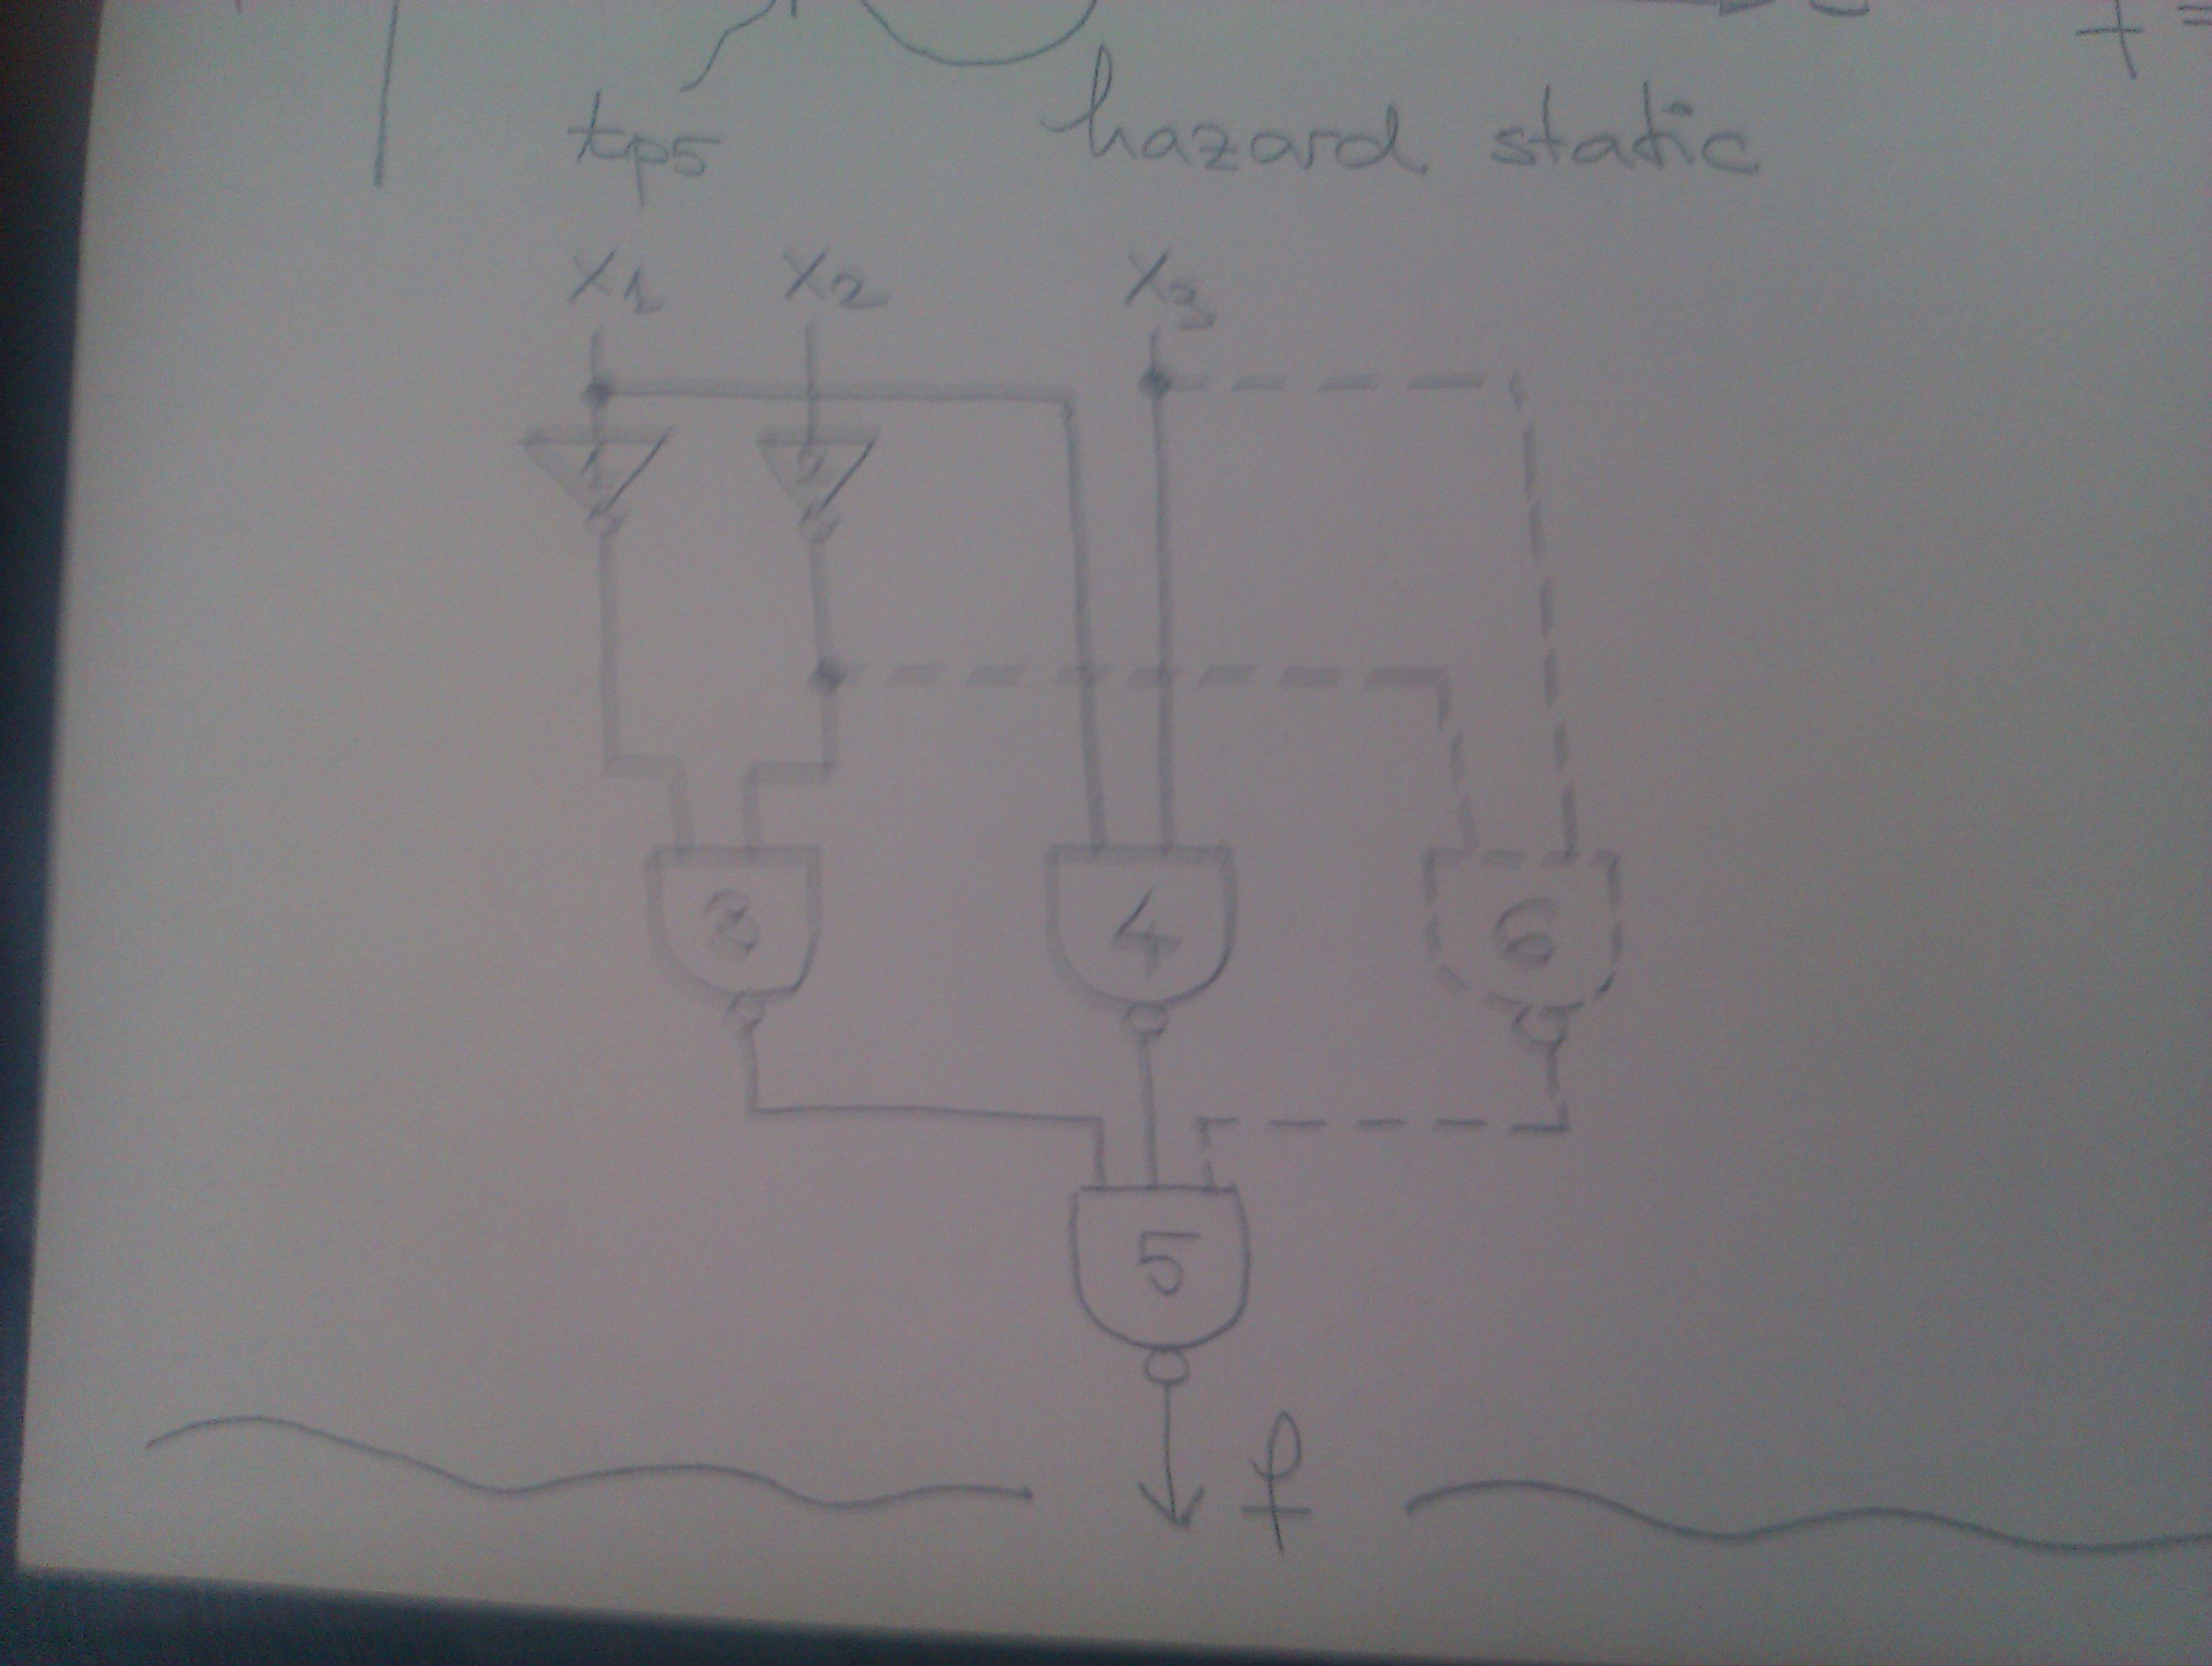 f =
tp5 hazard static
x1 x2 x3
1 2
3 4 6
5
f